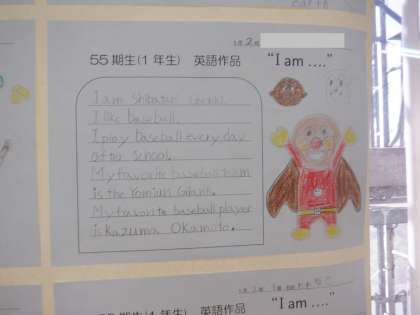 1年2組
55期生(1年生) 英語作品 "I am ...."
I am Shibatar
I like baseball.
I play baseball every day
after school.
My favorite baseball team
is the Yomiuri Giants.
My favorite baseball player
is Kazuma Okamoto.
55期生(1年生) 英語作品 "I am ...."